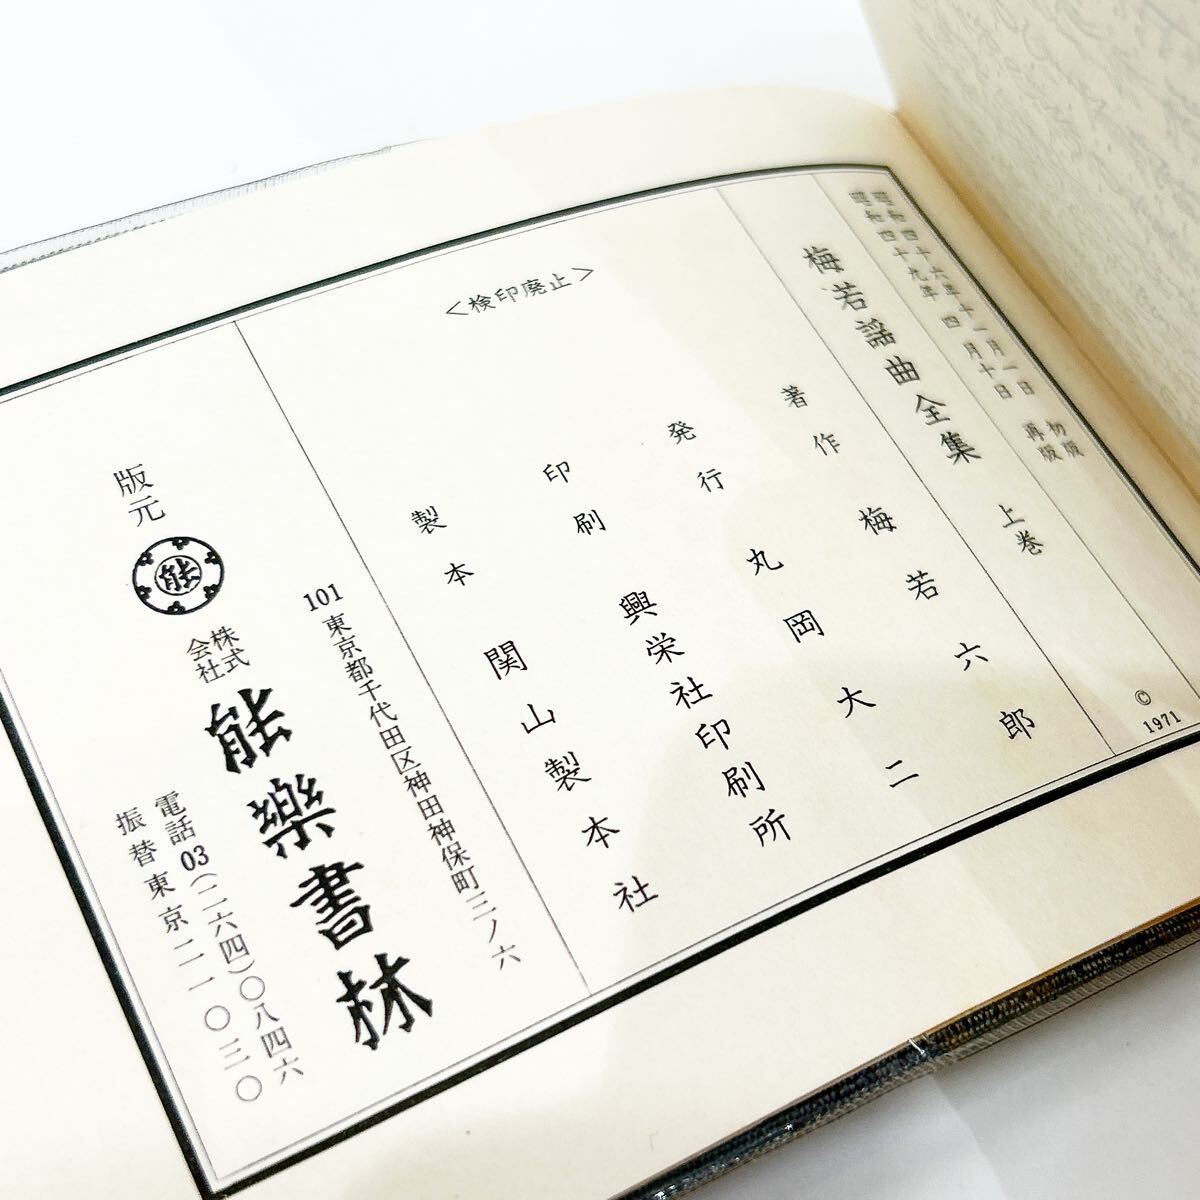 昭和四十六年十一月一日 初版
昭和四十九年四月十日 再版
梅若謡曲全集 上巻
© 1971
著作 梅若六郎
発行 丸岡大二
印刷 興栄社印刷所
製本 関山製本社
<検印廃止>
101 東京都千代田区神田神保町三ノ六
版元 能 株式会社 能樂書林
電話03(二六四)〇八四六
振替東京二一〇三〇